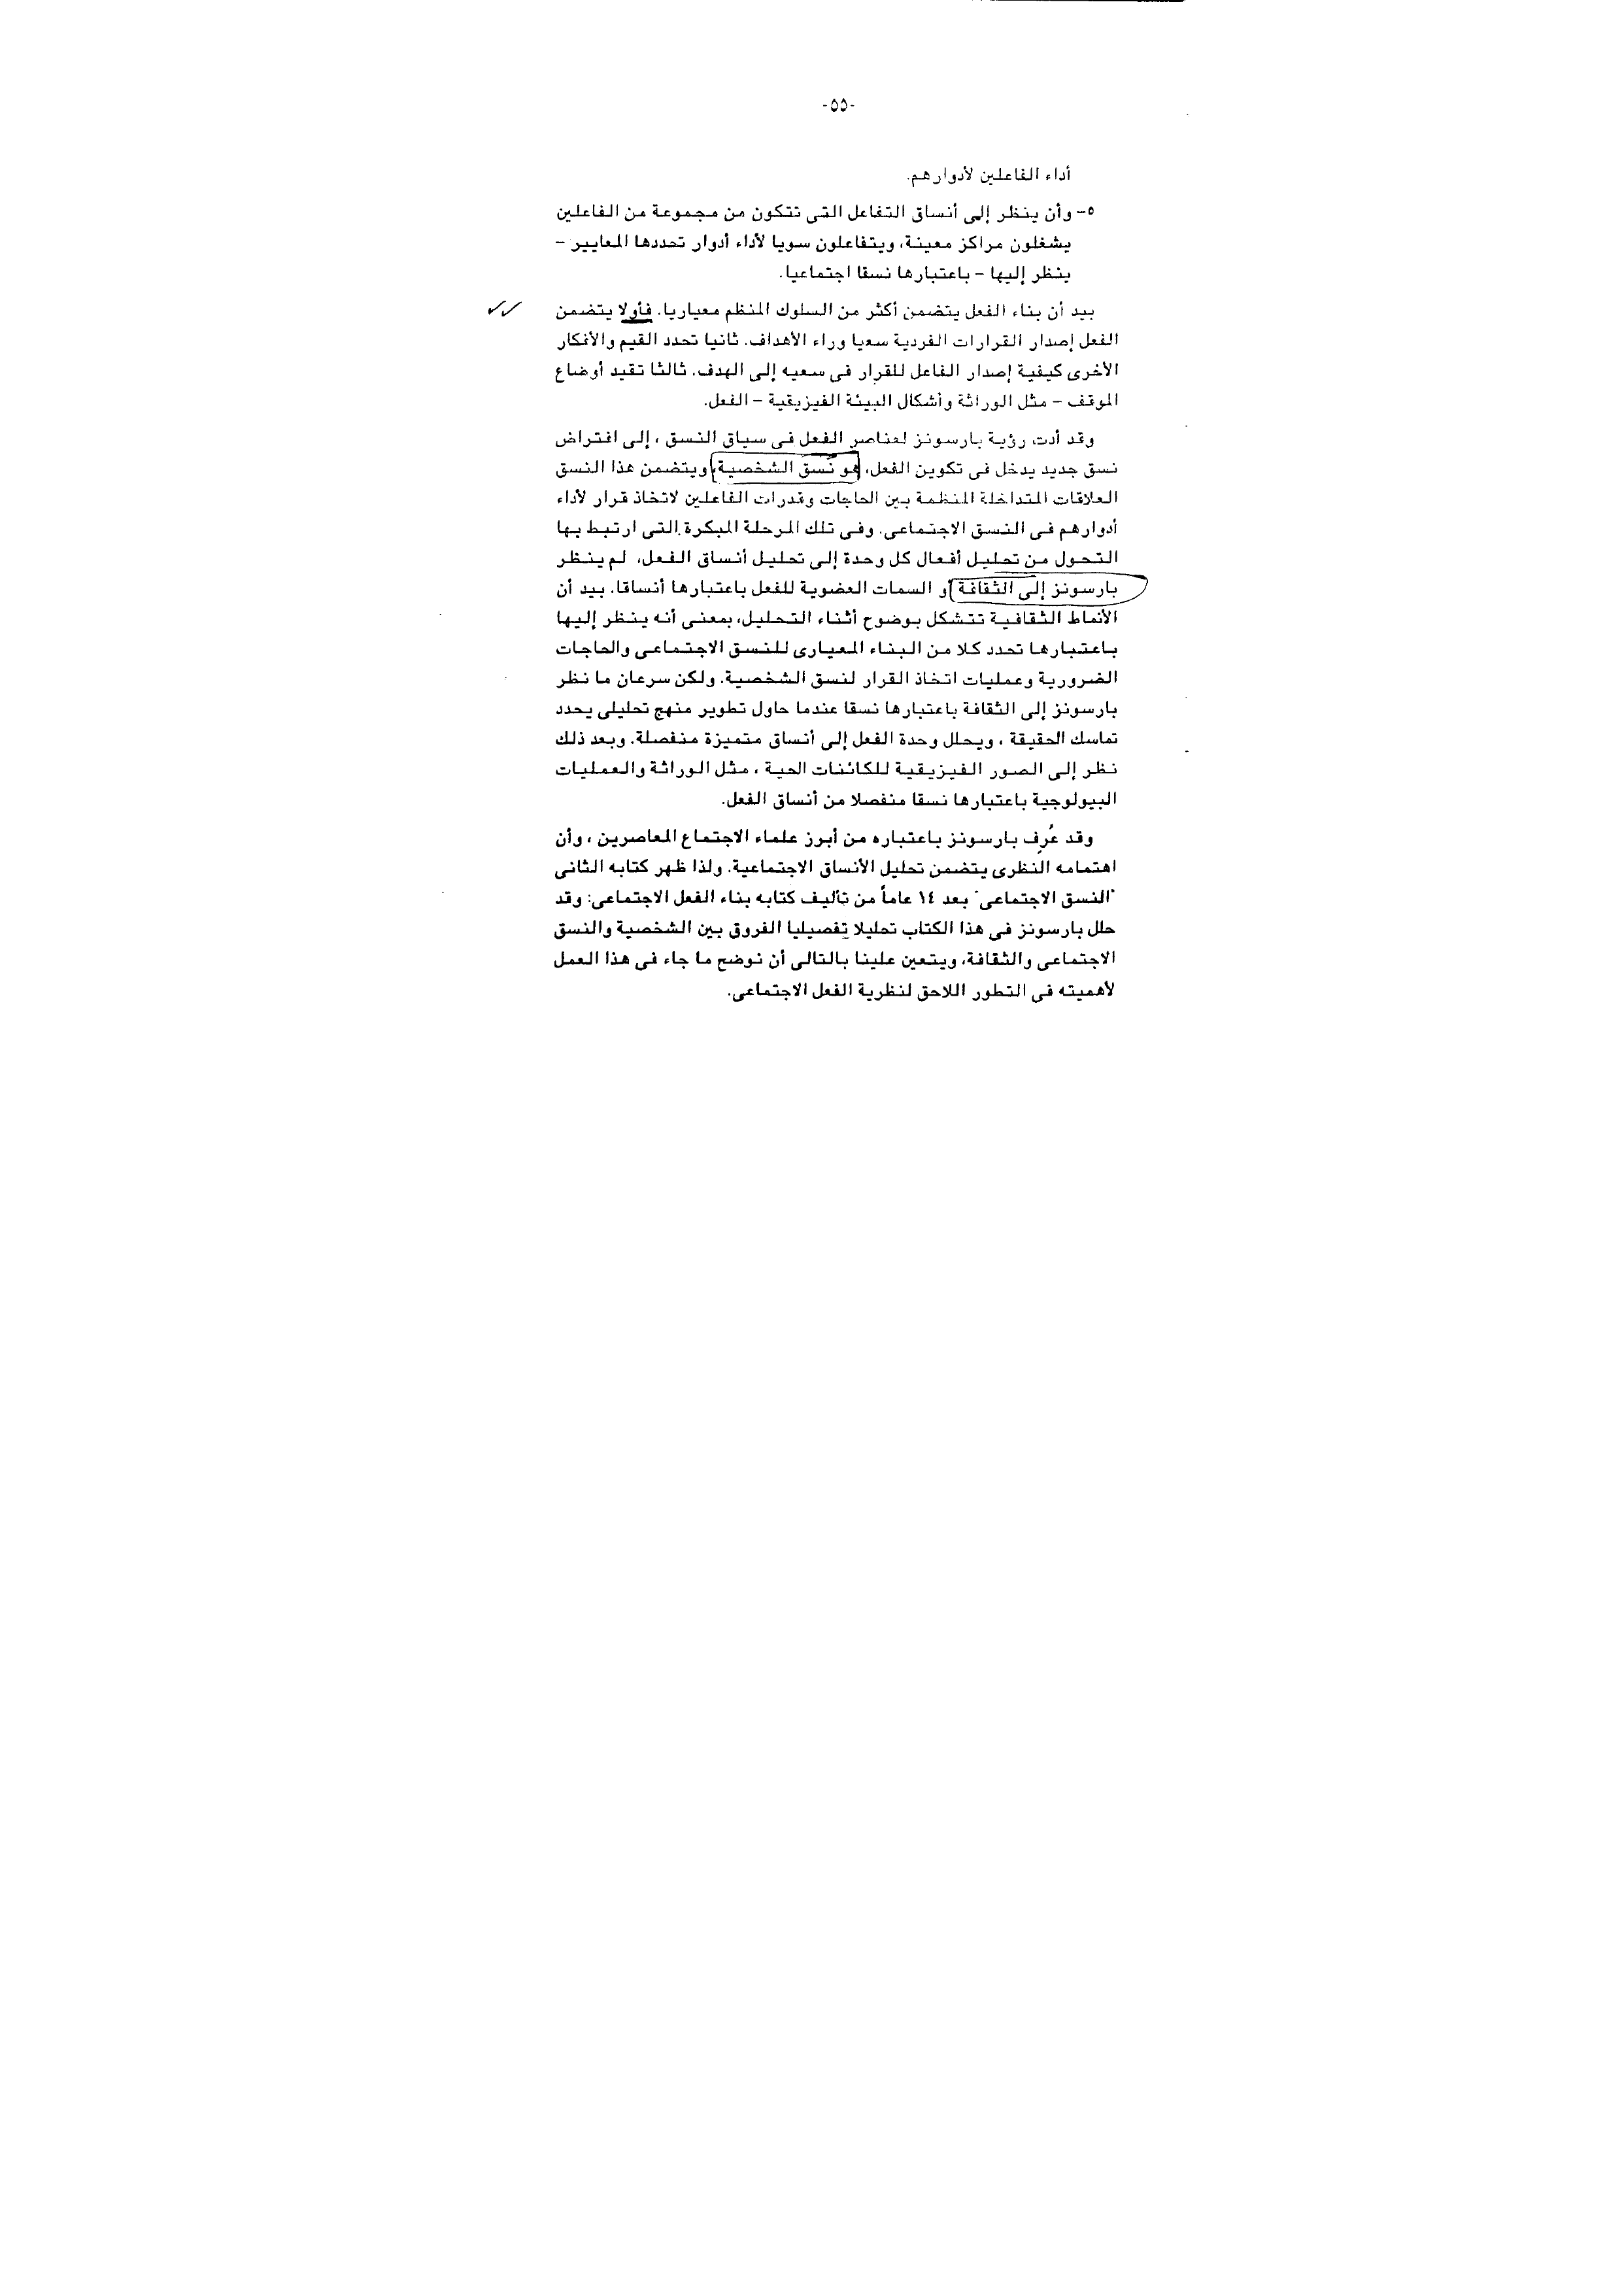 -٥٥-
أداء الفاعلين لأدوارهم.
٥- وأن ينظر إلى أنساق التفاعل التى تتكون من مجموعة من الفاعلين
يشغلون مراكز معينة، ويتفاعلون سويا لأداء أدوار تحددها المعايير –
ينظر إليها – باعتبارها نسقا اجتماعيا.
بيد أن بناء الفعل يتضمن أكثر من السلوك المنظم معياريا. فأولا يتضمن
الفعل إصدار القرارات الفردية سعيا وراء الأهداف. ثانيا تحدد القيم والأفكار
الأخرى كيفية إصدار الفاعل للقرار فى سعيه إلى الهدف. ثالثا تقيد أوضاع
الموقف – مثل الوراثة وأشكال البيئة الفيزيقية – الفعل.
وقد أدت رؤية بارسونز لعناصر الفعل فى سياق النسق ، إلى افتراض
نسق جديد يدخل فى تكوين الفعل، هو نسق الشخصية، ويتضمن هذا النسق
العلاقات المتداخلة المنظمة بين الحاجات وقدرات الفاعلين لاتخاذ قرار لأداء
أدوارهم فى النسق الاجتماعى. وفى تلك المرحلة المبكرة التى ارتبط بها
التحول من تحليل أفعال كل وحدة إلى تحليل أنساق الفعل، لم ينظر
بارسونز إلى الثقافة أو السمات العضوية للفعل باعتبارها أنساقا. بيد أن
الأنماط الثقافية تتشكل بوضوح أثناء التحليل، بمعنى أنه ينظر إليها
باعتبارها تحدد كلا من البناء المعيارى للنسق الاجتماعى والحاجات
الضرورية وعمليات اتخاذ القرار لنسق الشخصية. ولكن سرعان ما نظر
بارسونز إلى الثقافة باعتبارها نسقا عندما حاول تطوير منهج تحليلى يحدد
تماسك الحقيقة ، ويحلل وحدة الفعل إلى أنساق متميزة منفصلة. وبعد ذلك
نظر إلى الصور الفيزيقية للكائنات الحية ، مثل الوراثة والعمليات
البيولوجية باعتبارها نسقا منفصلا من أنساق الفعل.
وقد عُرِف بارسونز باعتباره من أبرز علماء الاجتماع المعاصرين ، وأن
اهتمامه النظرى يتضمن تحليل الأنساق الاجتماعية. ولذا ظهر كتابه الثانى
"النسق الاجتماعى" بعد ١٤ عاماً من تأليف كتابه بناء الفعل الاجتماعى: وقد
حلل بارسونز فى هذا الكتاب تحليلا تفصيليا الفروق بين الشخصية والنسق
الاجتماعى والثقافة، ويتعين علينا بالتالى أن نوضح ما جاء فى هذا العمل
لأهميته فى التطور اللاحق لنظرية الفعل الاجتماعى.